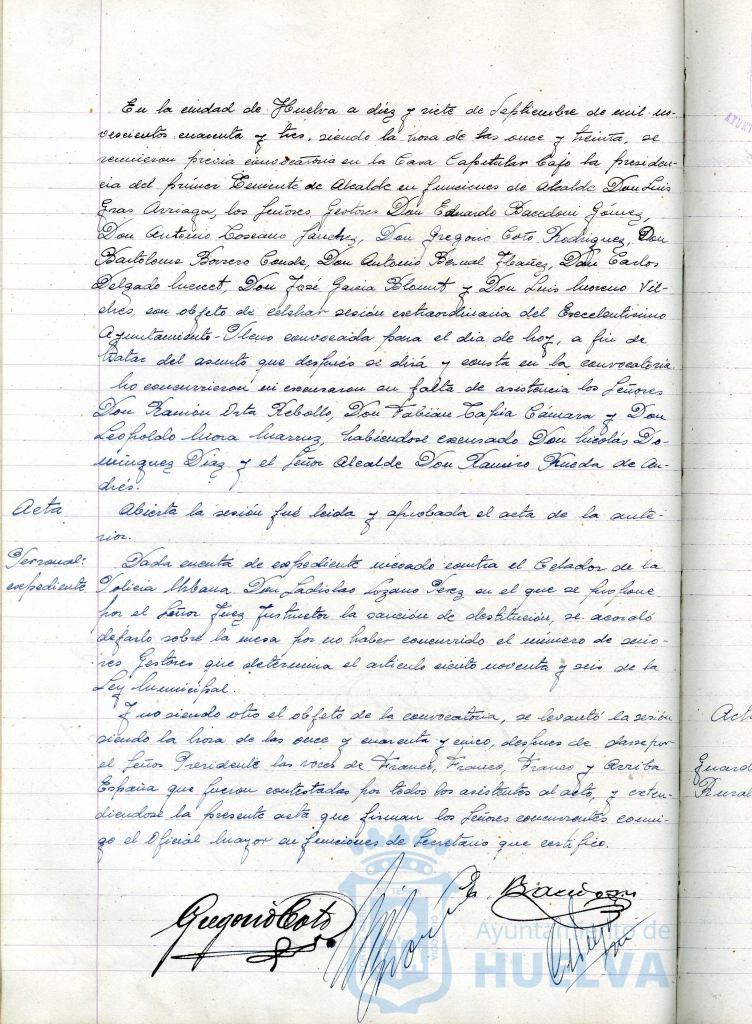 En la ciudad de Huelva a diez y siete de Septiembre de mil no-
vescientos cuarenta y tres, siendo la hora de las once y treinta, se
reunieron previa convocatoria en la Casa Capitular bajo la presiden-
cia del primer Teniente de Alcalde en funciones de Alcalde Don Luis
Gras Arriaga, los Señores Gestores Don Eduardo Bacedoni Gómez,
Don Antonio Loseano Sánchez, Don Gregorio Coto Rodriguez, Don
Bartolome Borrero Conde, Don Antonio Bernal Ibañez, Don Carlos
Delgado Don José Garcia y Don Luis Moreno Vil-
ches, con objeto de celebrar sesión extraordinaria del Excelentisimo
Ayuntamiento-Pleno convocada para el dia de hoy, a fin de
tratar del asunto que después se dirá y consta en la convocatoria.
No concurrieron ni excusaron su falta de asistencia los Señores
Don Ramón Orta Rebollo, Don Fabián Tapia Cámara y Don
Leopoldo Mora habiéndose excusado Don Nicolás Do-
minguez Diaz y el Señor Alcalde Don Ramiro Rueda de An-
drés.
Acta
Abierta la sesión fué leida y aprobada el acta de la ante-
rior.
Personal:
expediente
Dada cuenta de expediente incoado contra el Celador de la
Policia Urbana Don Ladislao Lozano Perez en el que se propone
por el Señor Juez Instructor la sanción de destitución, se acordó
dejarlo sobre la mesa por no haber concurrido el número de seño-
res Gestores que determina el articulo ciento noventa y seis de la
Ley Municipal.
Y no siendo otro el objeto de la convocatoria, se levantó la sesión
siendo la hora de las once y cuarenta y cinco, despues de darse por
el Señor Presidente las voces de Franco, Franco, Franco y Arriba
España que fueron contestadas por todos los asistentes al acto, y exten-
diendose la presente acta que firman los Señores concurrentes conmi-
go el Oficial Mayor en funciones de Secretario que certifico.
Gregorio Coto
E. Bacedoni
Ayuntamiento de
HUELVA
Acta
Guard
Rural